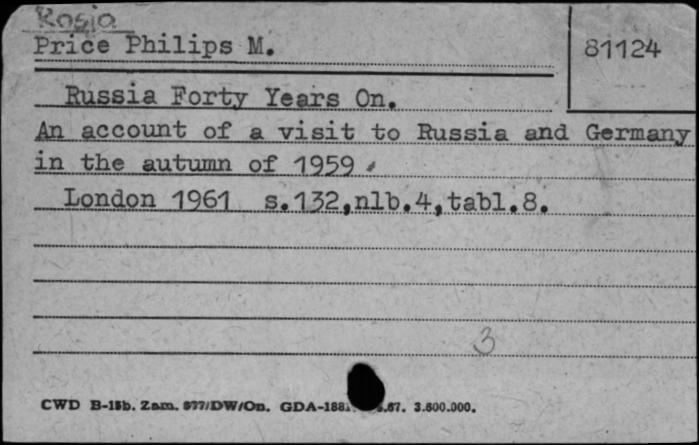 Rosja
Price Philips M.
81124
Russia Forty Years On.
An account of a visit to Russia and Germany
in the autumn of 1959
London 1961 s.132,nlb.4,tabl.8.
3
CWD B-15b. Zam. 977/DW/On. GDA-1881 .67. 3.600.000.